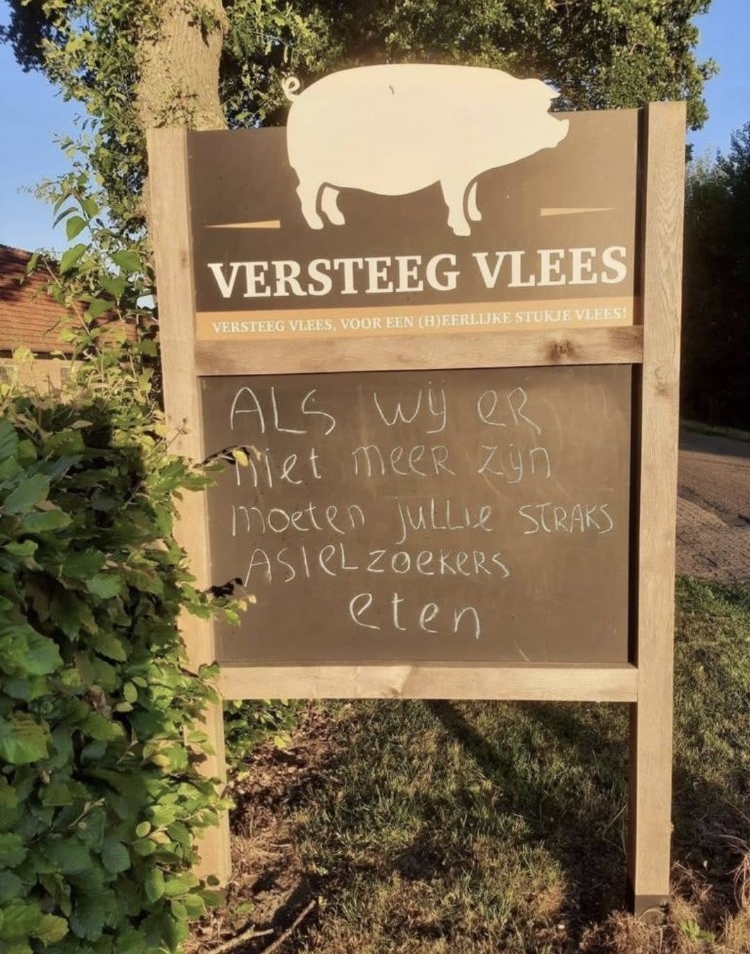 VERSTEEG VLEES
VERSTEEG VLEES, VOOR EEN (H)EERLIJKE STUKJE VLEES!
ALS Wij eR
niet meeR zijn
moeten julLie STRAKS
ASIELZOEKERS
eten